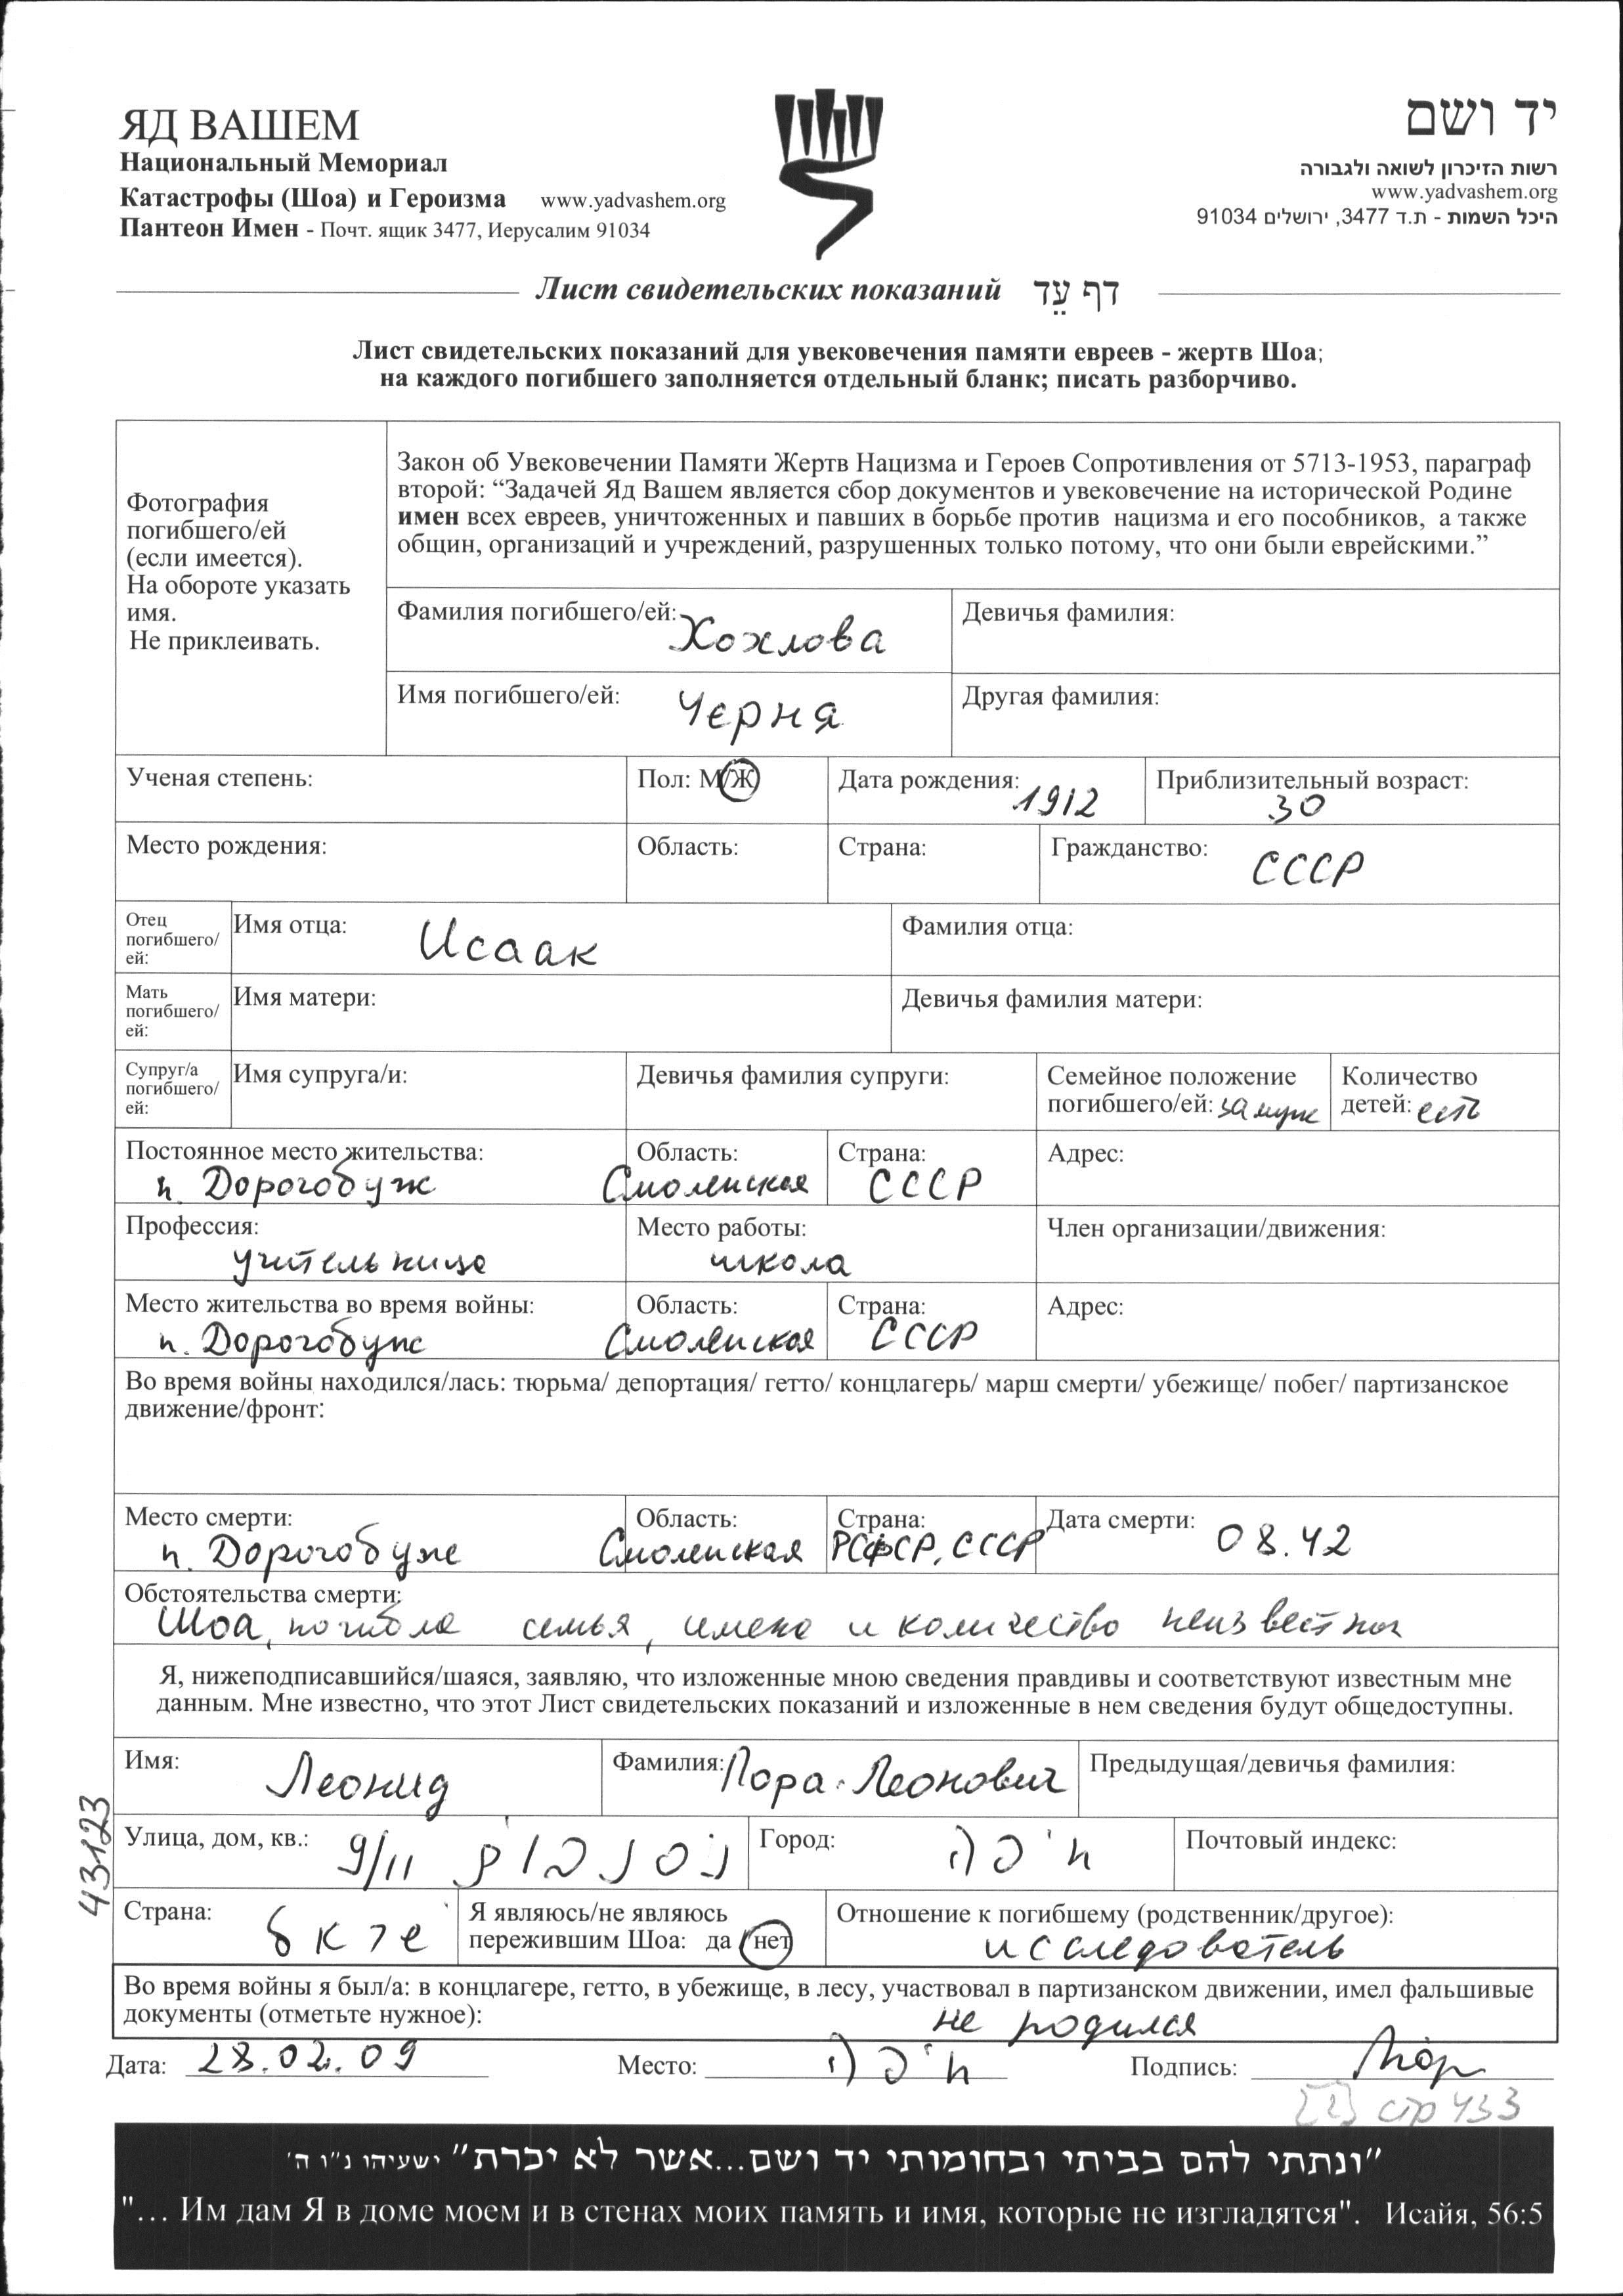 ЯД ВАШЕМ
Национальный Мемориал
Катастрофы (Шоа) и Героизма www.yadvashem.org
Пантеон Имен - Почт. ящик 3477, Иерусалим 91034
יד ושם
רשות הזיכרון לשואה ולגבורה
www.yadvashem.org
היכל השמות - ת.ד 3477, ירושלים 91034
Лист свидетельских показаний דף עֵד
Лист свидетельских показаний для увековечения памяти евреев - жертв Шоа;
на каждого погибшего заполняется отдельный бланк; писать разборчиво.
Фотография
погибшего/ей
(если имеется).
На обороте указать
имя.
Не приклеивать.
Закон об Увековечении Памяти Жертв Нацизма и Героев Сопротивления от 5713-1953, параграф
второй: “Задачей Яд Вашем является сбор документов и увековечение на исторической Родине
имен всех евреев, уничтоженных и павших в борьбе против нацизма и его пособников, а также
общин, организаций и учреждений, разрушенных только потому, что они были еврейскими.”
Фамилия погибшего/ей: Хохлова Девичья фамилия:
Имя погибшего/ей: Черня Другая фамилия:
Ученая степень: Пол: М/Ж Дата рождения: 1912 Приблизительный возраст: 30
Место рождения: Область: Страна: Гражданство: СССР
Отец погибшего/ей: Имя отца: Исаак Фамилия отца:
Мать погибшего/ей: Имя матери: Девичья фамилия матери:
Супруг/а погибшего/ей: Имя супруга/и: Девичья фамилия супруги: Семейное положение погибшего/ей: замуж Количество детей: есть
Постоянное место жительства: п. Дорогобуж Область: Смоленская Страна: СССР Адрес:
Профессия: учительница Место работы: школа Член организации/движения:
Место жительства во время войны: п. Дорогобуж Область: Смоленская Страна: СССР Адрес:
Во время войны находился/лась: тюрьма/ депортация/ гетто/ концлагерь/ марш смерти/ убежище/ побег/ партизанское
движение/фронт:
Место смерти: п. Дорогобуж Область: Смоленская Страна: РСФСР, СССР Дата смерти: 08.42
Обстоятельства смерти:
Шоа, погибла семья, имена и количество неизвестны
Я, нижеподписавшийся/шаяся, заявляю, что изложенные мною сведения правдивы и соответствуют известным мне
данным. Мне известно, что этот Лист свидетельских показаний и изложенные в нем сведения будут общедоступны.
Имя: Леонид Фамилия: Пора-Леонович Предыдущая/девичья фамилия:
Улица, дом, кв.: 9/11 Город: חיפה Почтовый индекс:
Страна: Я являюсь/не являюсь Отношение к погибшему (родственник/другое):
пережившим Шоа: да / нет исследователь
Во время войны я был/а: в концлагере, гетто, в убежище, в лесу, участвовал в партизанском движении, имел фальшивые
документы (отметьте нужное): не родился
Дата: 28.02.09 Место: חיפה Подпись:
стр 433
43123
”ונתתי להם בביתי ובחומותי יד ושם...אשר לא יכרת” ישעיהו נ"ו ה'
"... Им дам Я в доме моем и в стенах моих память и имя, которые не изгладятся". Исайя, 56:5